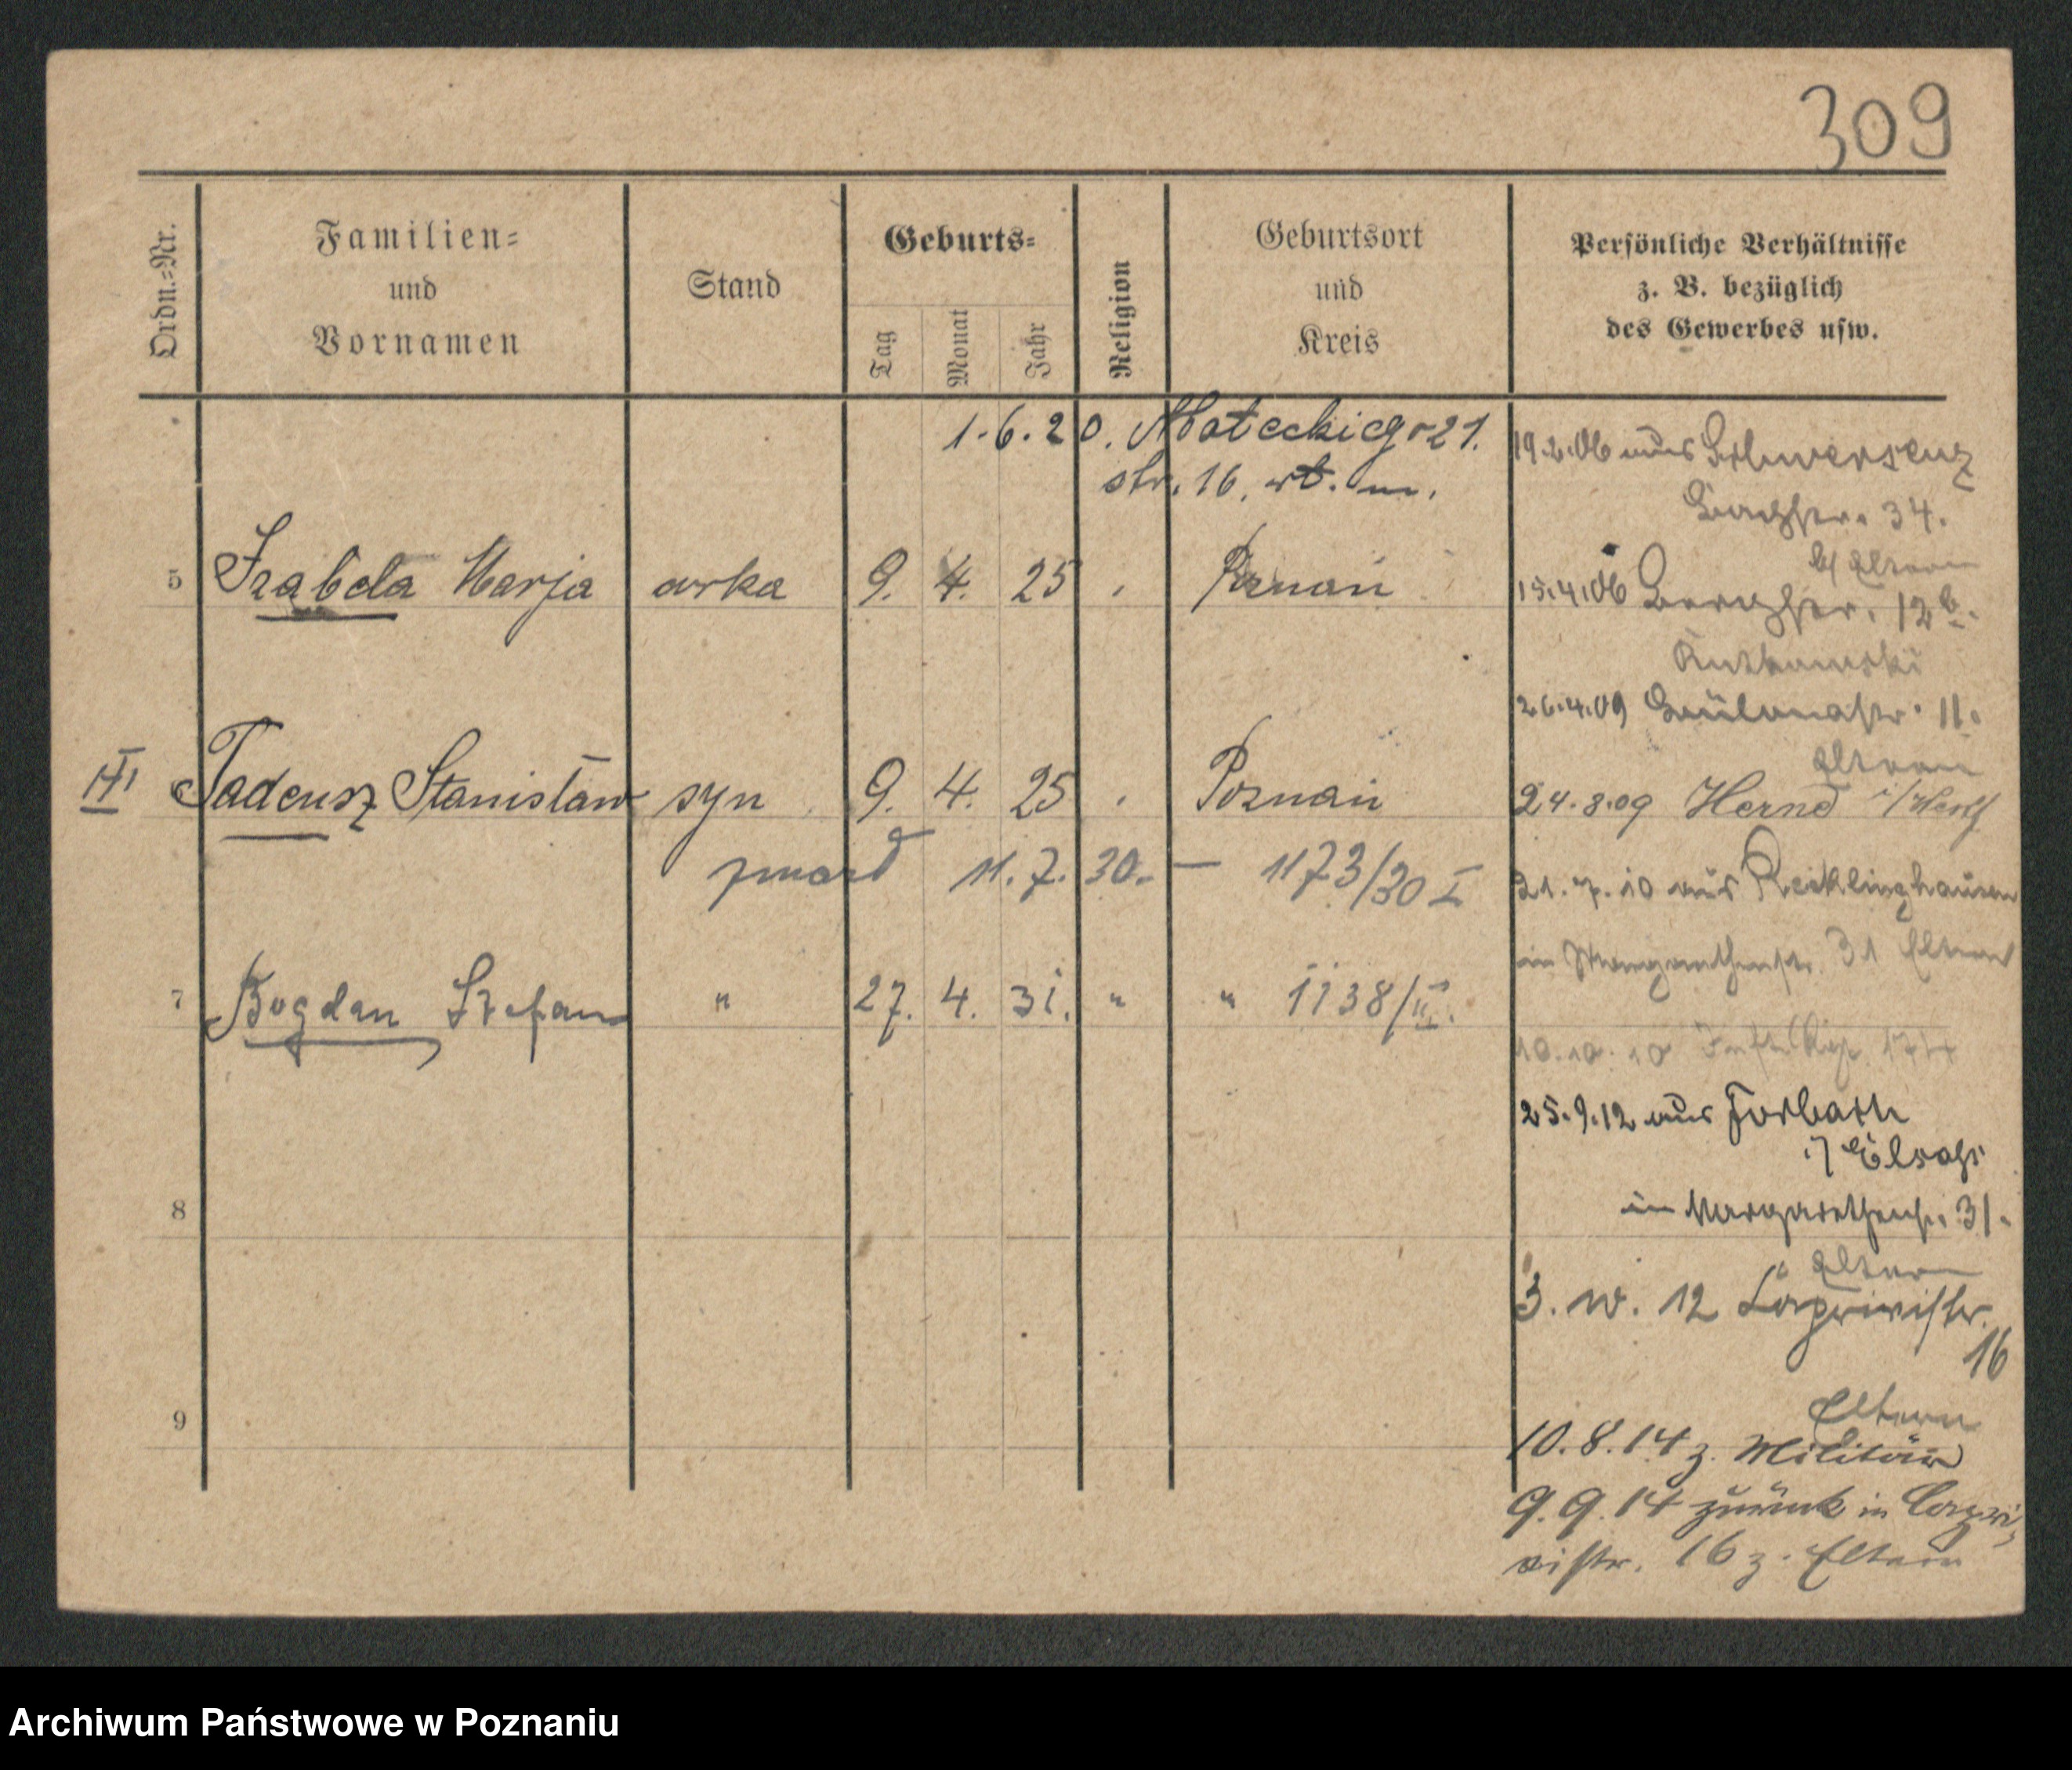 309
Ordn.=Nr.
Familien=
und
Vornamen
Stand
Geburts=
Tag
Monat
Jahr
Religion
Geburtsort
und
Kreis
Persönliche Verhältnisse
z. B. bezüglich
des Gewerbes usw.
1.6.20. Mateckiego 21.
str. 16.
5 Izabela Marja 9. 4. 25 Poznań
III Tadeusz Stanisław syn 9. 4. 25 Poznań
zmarł 11.7.30. — 1173/30 I
7 Bogdan Stefan " 27. 4. 31. " " 1138/III.
8
9
19.2.06 aus Schwersenz
34.
b/ Eltern
15.4.06 12b.
Rutkowski
26.4.09 11.
Eltern
24.8.09 Herne i/Westf
21.7.10 aus Recklinghausen
in Margarethenstr. 31 Eltern
10.10.10
25.9.12 aus Forbach
i/ Elsaß
in Margarethenstr. 31.
Eltern
3. 10. 12
16
Eltern
10.8.14 z. Militär
9.9.14 zurück in
16 z. Eltern
Archiwum Państwowe w Poznaniu